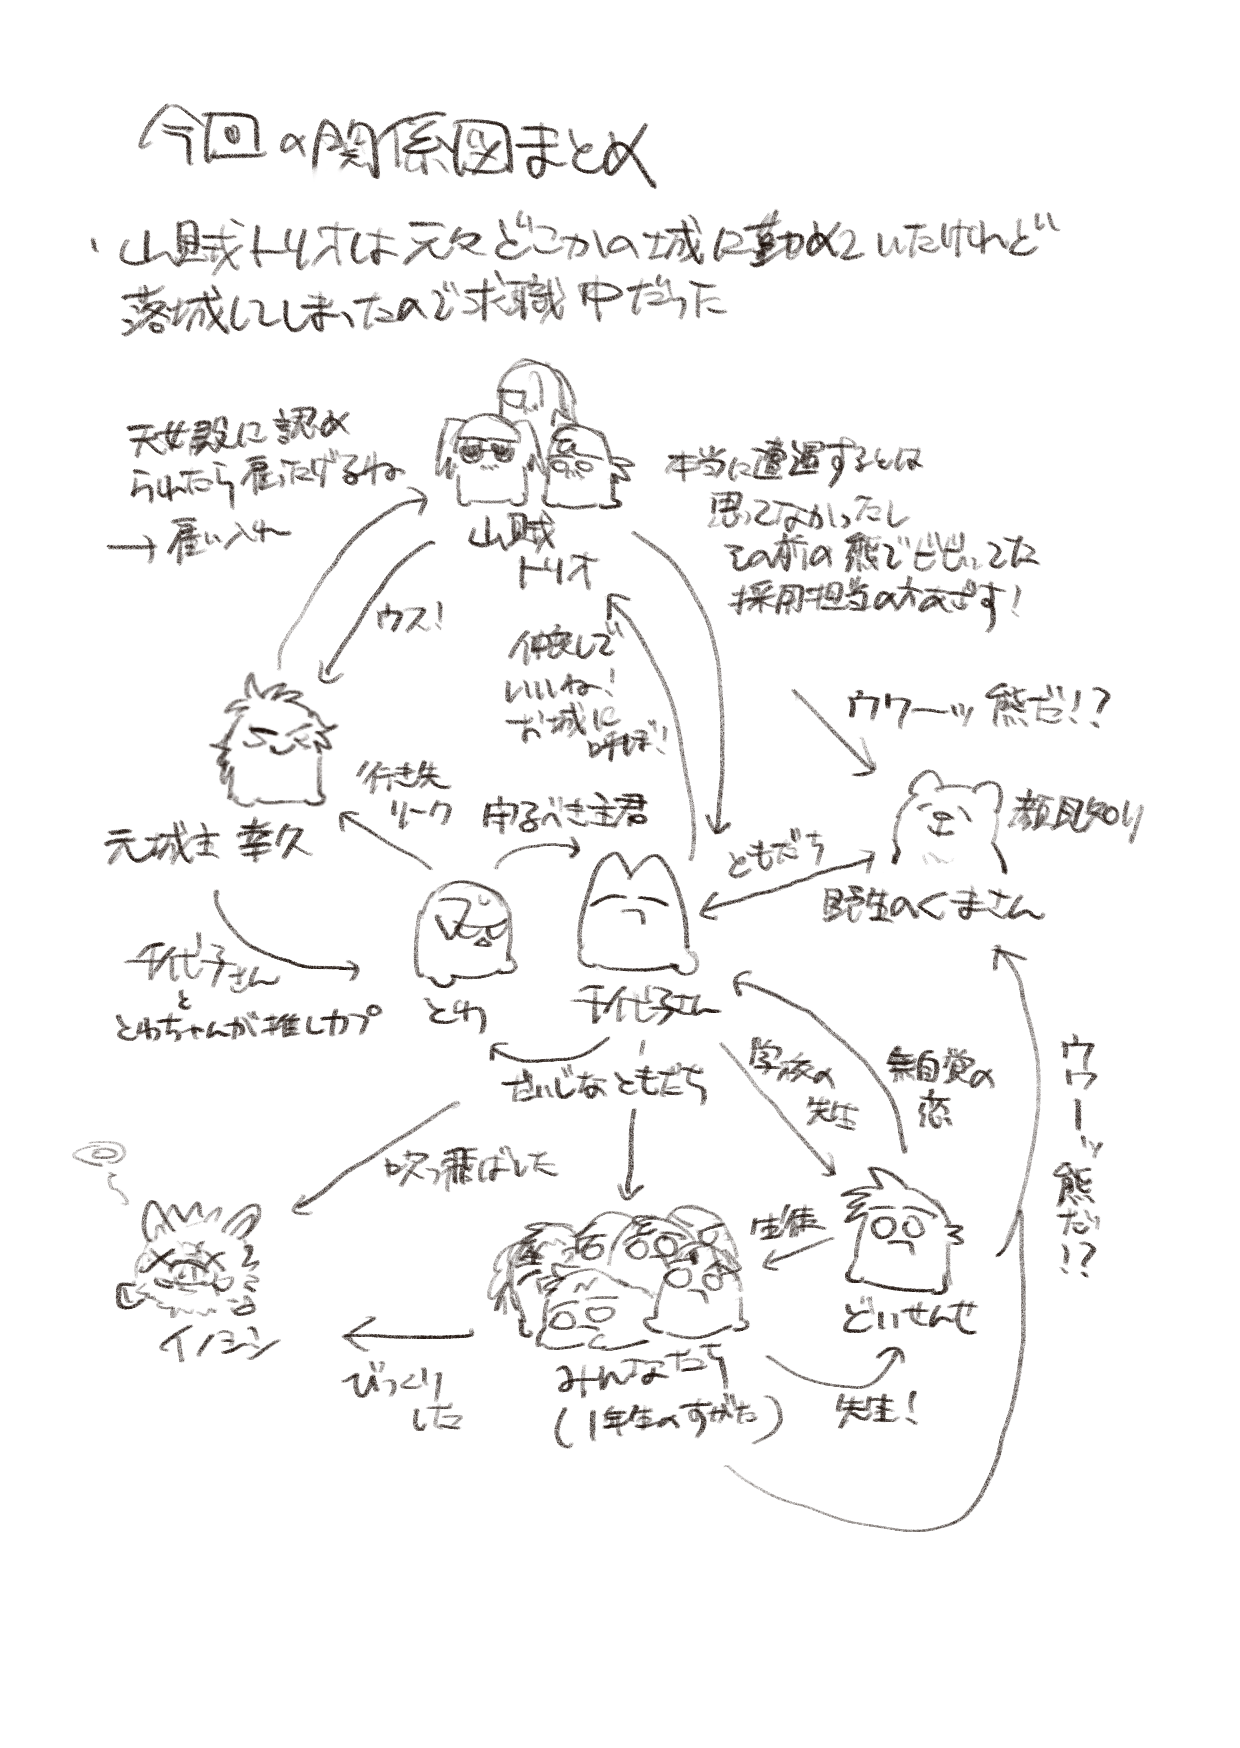 今回の関係図まとめ
・山賊トリオは元々どこかの城に勤めていたけれど
落城してしまったので求職中だった
天女殿に認め
られたら雇ったげるね
→雇い入れ
本当に遭遇するとは
思ってなかったし
その前の熊でビビってた
採用担当の方のざす!
山賊
トリオ
ウス!
仲良しで
いいね!
お城に
呼ぼ!
ウワーッ熊だ!?
行き先
リーク
守るべき主君
顔見知り
ともだち
元城主 幸久
野生のくまさん
千代子さん
と
とわちゃんが推しカプ
とわ
千代子さん
だいじなともだち
学校の
先生
無自覚の
恋
ウワーッ熊だ!?
吹っ飛ばした
生徒
イノシシ
どいせんせ
びっくり
した
みんなたち
(1年生のすがた)
先生!